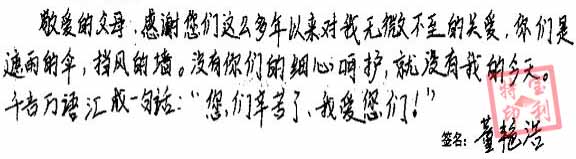 敬爱的父母，感谢您们这么多年以来对我无微不至的关爱，你们是
遮雨的伞，挡风的墙。没有你们的细心呵护，就没有我的今天。
千言万语汇成一句话：“您们辛苦了、我爱您们！”
签名：董艳浩